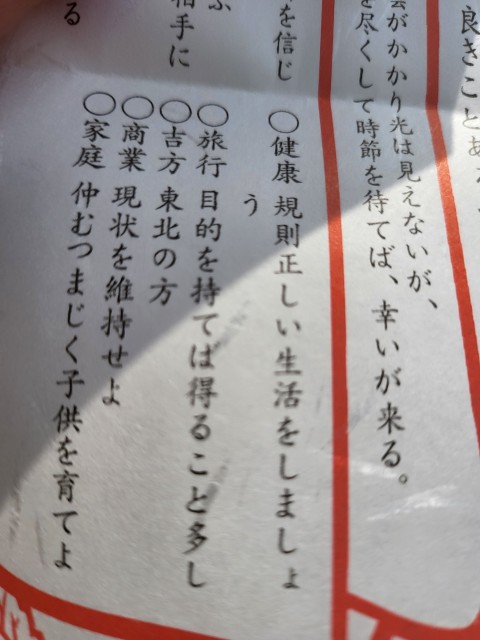 良きことあ
雲がかかり光は見えないが、
を尽くして時節を待てば、幸いが来る。
を信じ
ぶ
相手に
る
〇健康 規則正しい生活をしましょ
う
〇旅行 目的を持ては得ること多し
〇吉方 東北の方
〇商業 現状を維持せよ
〇家庭 仲むつまじく子供を育てよ